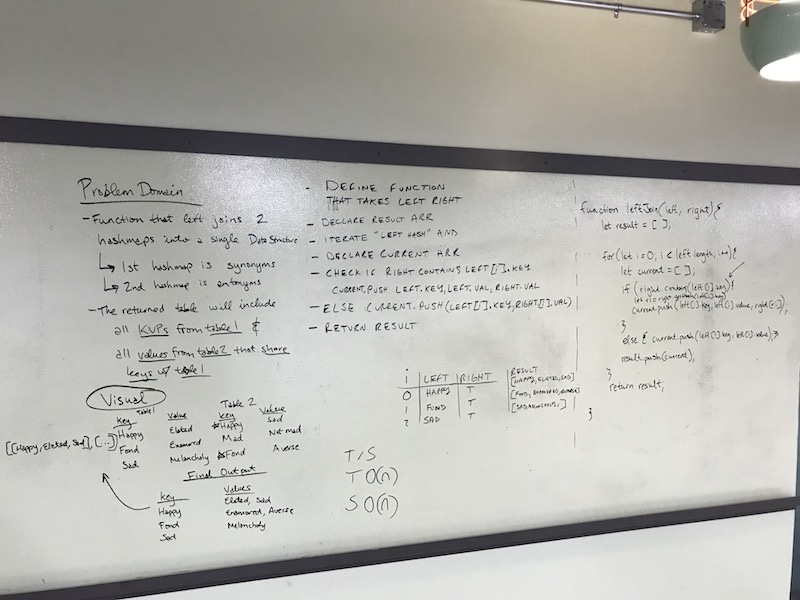 Problem Domain
- Function that left joins 2
hashmaps into a single Data Structure
↳ 1st hashmap is synonyms
↳ 2nd hashmap is antonyms
- The returned table will include
all KVPs from table 1 &
all values from table 2 that share
keys w/ table 1
Visual
Table 1
Key Value
Happy Elated
Fond Enamord
Sad Melancholy
Table 2
Key Value
Happy Sad
Mad Not mad
Fond Averse
[[Happy, Elated, Sad], [...]]
Final Output
Key Values
Happy Elated, Sad
Fond Enamored, Averse
Sad Melancholy
- DEFINE FUNCTION
THAT TAKES LEFT RIGHT
- DECLARE RESULT ARR
- ITERATE "LEFT HASH" AND
- DECLARE CURRENT ARR
- CHECK IF RIGHT CONTAINS LEFT[i].KEY
CURRENT.PUSH LEFT.KEY, LEFT.VAL, RIGHT.VAL
- ELSE CURRENT.PUSH(LEFT[i].KEY, RIGHT[i].VAL)
- RETURN RESULT
i LEFT RIGHT RESULT
0 HAPPY T [HAPPY, ELATED, SAD]
1 FOND T
2 SAD T
T/S
T O(n)
S O(n)
function leftJoin(left, right){
let result = [ ];
for(let i=0; i < left.length; i++){
let current = [ ];
if (right.contains(left[i].key){
current.push(left[i].key, left[i].value,
}
else { current.push(left[i].key, left[i].value);}
result.push(current);
}
return result;
}